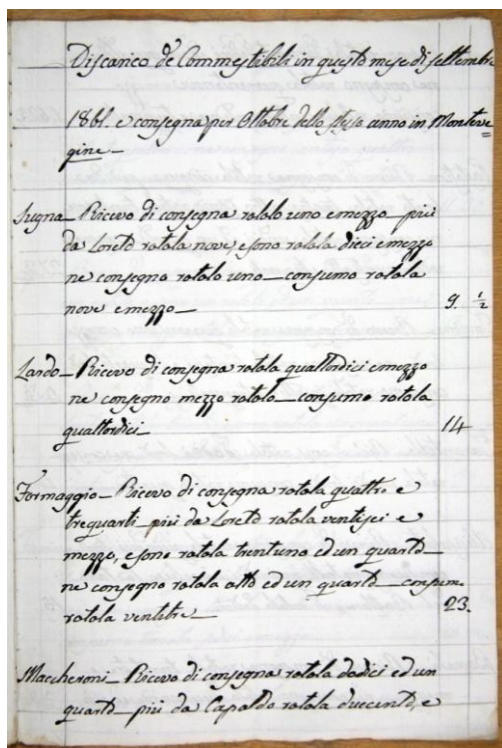 Discarico de Commestibili in questo mese di settembre
1861. e consegna per Ottobre dello stesso anno in Monteve=
gine_
Sugna_ Ricevo di consegna rotolo uno e mezzo_ più
da Loreto rotola nove, e sono rotola dieci e mezzo
ne consegno rotolo uno_ consumo rotola
nove e mezzo_ 9. ½
Lardo_ Ricevo di consegna rotola quattordici e mezzo
ne consegno mezzo rotolo_ consumo rotola
quattordici_ 14
Formaggio_ Ricevo di consegna rotola quattro e
trequarti_ più da Loreto rotola ventisei e
mezzo, e sono rotola trentuno ed un quarto_
ne consegno rotola otto ed un quarto_ consumo
rotola ventitre_ 23.
Maccheroni_ Ricevo di consegna rotola dodici ed un
quarto_ più da Capaldo rotola duecento, e